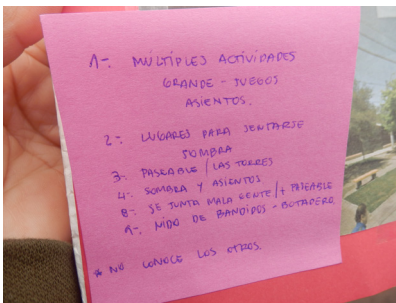 1-. MÚLTIPLES ACTIVIDADES
GRANDE - JUEGOS
ASIENTOS.
2-. LUGARES PARA SENTARSE
SOMBRA
3-. PASEABLE / LAS TORRES
4-. SOMBRA Y ASIENTOS
B-. SE JUNTA MALA GENTE /+ PASEABLE
A-. NIDO DE BANDIDOS - BOTADERO.
* NO CONOCE LOS OTROS.